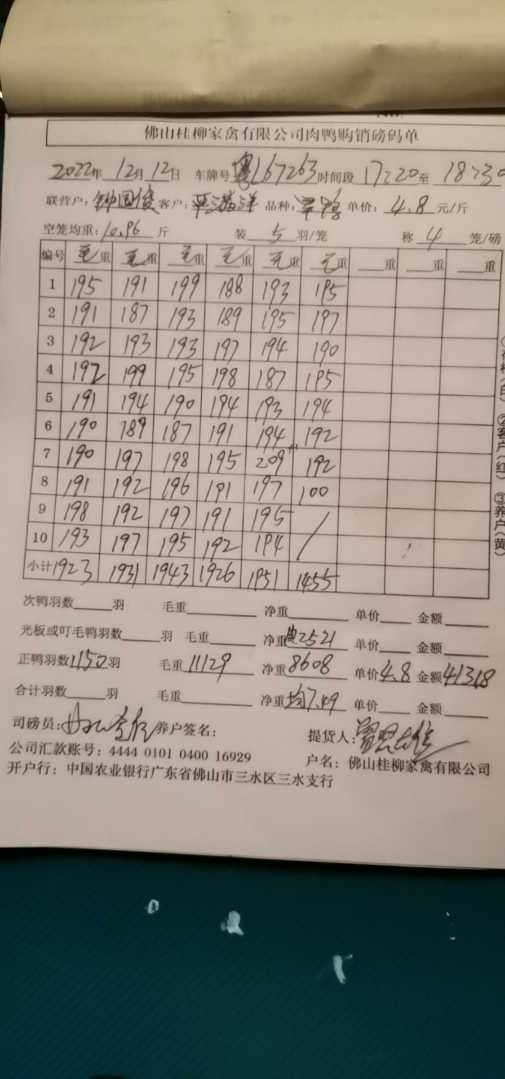 佛山桂柳家禽有限公司肉鸭购销磅码单
2022年 12月 12日 车牌号 粤L67263 时间段 17:20 至 18:30
联营户: 客户: 品种: 单价: 4.8 元/斤
空笼均重: 10.86 斤 装 5 羽/笼 称 4 笼/磅
编号 毛重 毛重 毛重 毛重 毛重 毛重 重 重 重
1 195 191 199 188 193 195
2 191 187 193 189 195 197
3 192 193 193 197 194 190
4 192 199 195 198 187 195
5 191 194 190 194 193 194
6 190 189 187 191 194 192
7 190 197 198 195 209 192
8 191 192 196 191 197 100
9 198 192 197 191 195 /
10 193 197 195 192 194 /
小计 1923 1931 1943 1926 1951 1455
次鸭羽数 羽 毛重 净重 单价 金额
光板或叮毛鸭羽数 羽 毛重 净重 2521 单价 金额
正鸭羽数 1150 羽 毛重 11129 净重 8608 单价 4.8 金额 41318
合计羽数 羽 毛重 净重 均7.49 单价 金额
司磅员: 养户签名: 提货人:
公司汇款账号: 4444 0101 0400 16929 户名: 佛山桂柳家禽有限公司
开户行: 中国农业银行广东省佛山市三水区三水支行
②客户(红)
③养户(黄)